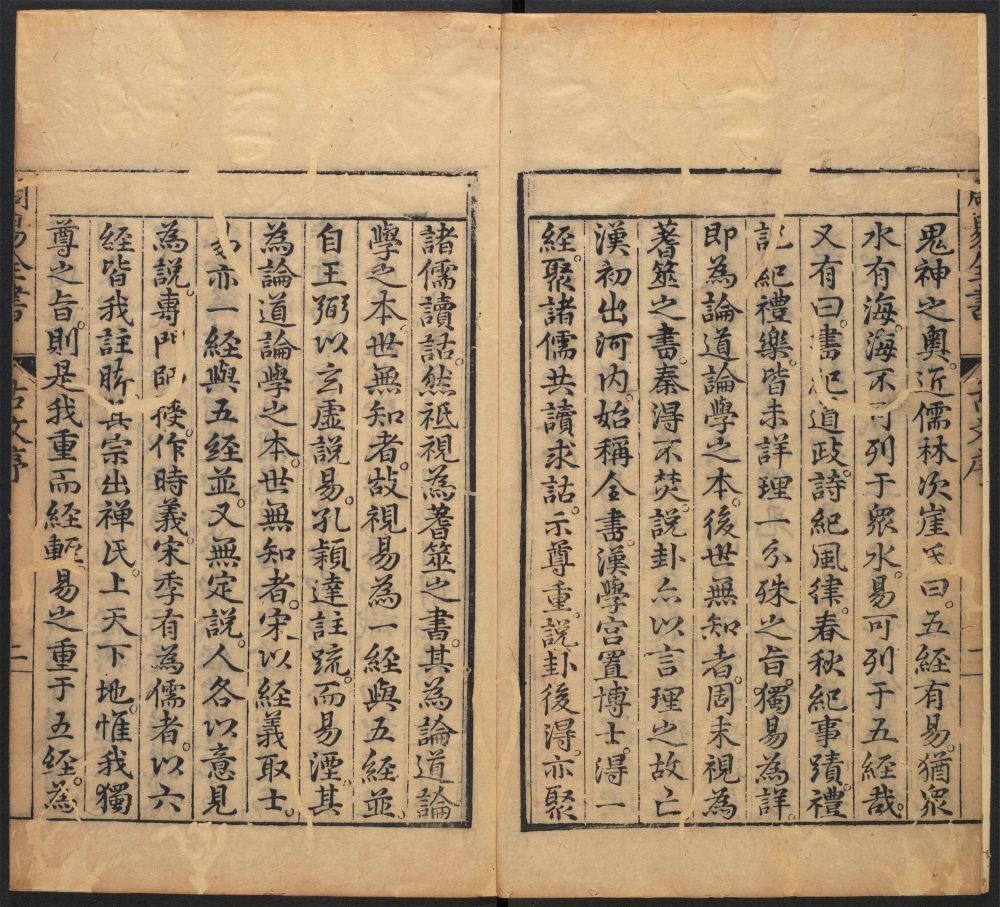 鬼神之奧。近儒林次崖氏曰。五經有易。猶衆
水有海。海不可列于衆水。易可列于五經哉。
又有曰。書紀道政。詩紀風律。春秋紀事蹟。禮
記紀禮樂。皆未詳。理一分殊之旨。獨易為詳。
即為論道論學之本。後世無知者。周末視為
蓍筮之書。秦得不焚。說卦亦以言理之故亡
漢初出河內。始稱全書。漢學宮置博士。得一
經。聚諸儒共讀求詁。示尊重。說卦後得。亦聚
諸儒讀詁。然祗視為蓍筮之書。其為論道論
學之本。世無知者。故視易為一經與五經並。
自王弼以玄虛說易。孔穎達註疏。而易湮。其
為論道論學之本。世無知者。宋以經義取士。
易亦一經與五經並。又無定說。人各以意見
為說。專門師授。作時義。宋季有為儒者。以六
經皆我註脚。其宗出禅氏。上天下地。惟我獨
尊之旨。則是我重而經輕。易之重于五經。為
周易全書
古文序
二